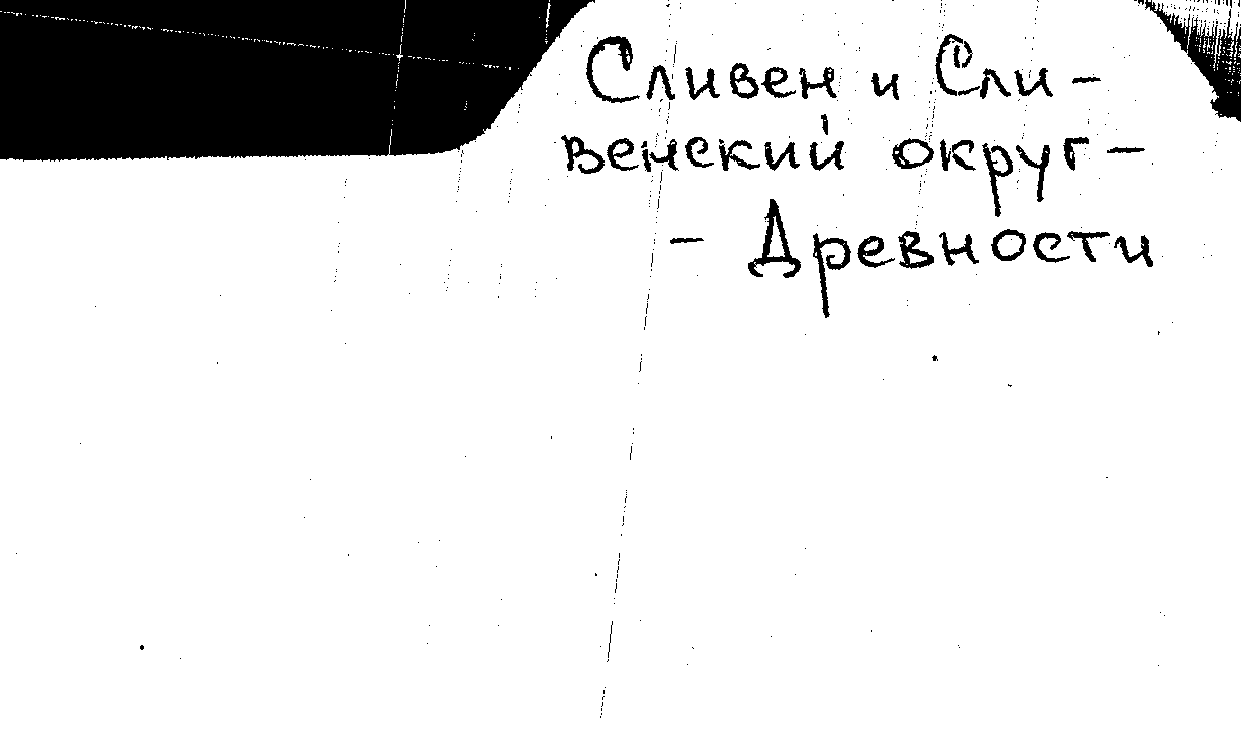 Сливен и Сли-
венский округ-
- Древности